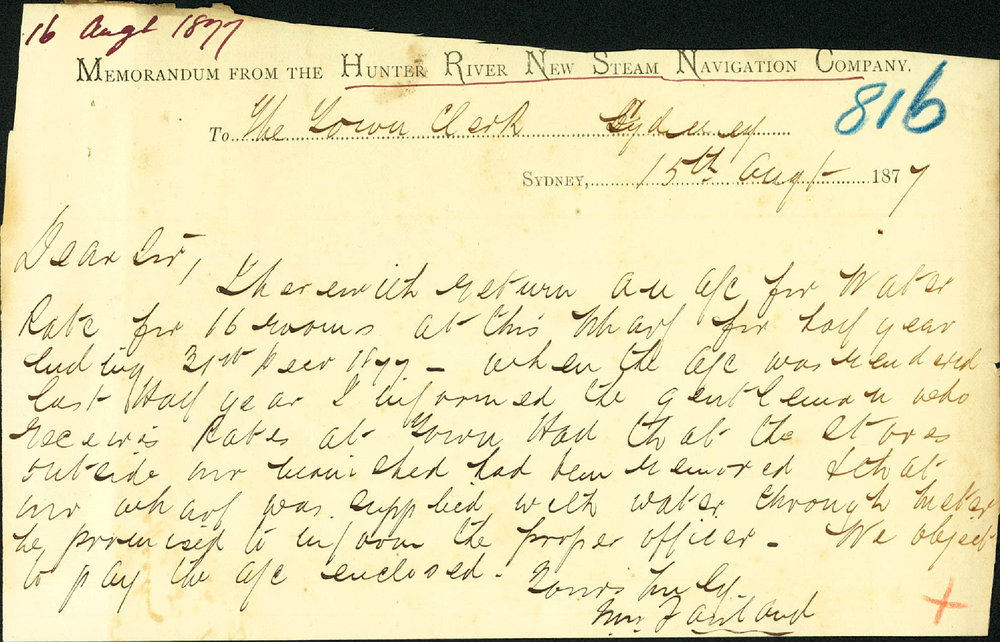 16 Augt 1877
MEMORANDUM FROM THE HUNTER RIVER NEW STEAM NAVIGATION COMPANY.
816
To The Town Clerk Sydney
SYDNEY, 15th Augt 1877
Dear Sir,
I herewith return an a/c for Water
Rate for 16 rooms at this Wharf for half year
ending 31st Decr 1877 – when the a/c was rendered
last Half year I informed the gentleman who
receives Rates at Town Hall that the stores
outside our had been removed & that
our wharf was supplied with water through meter
he promised to inform the proper officer – We object
to pay the a/c enclosed.
Yours truly